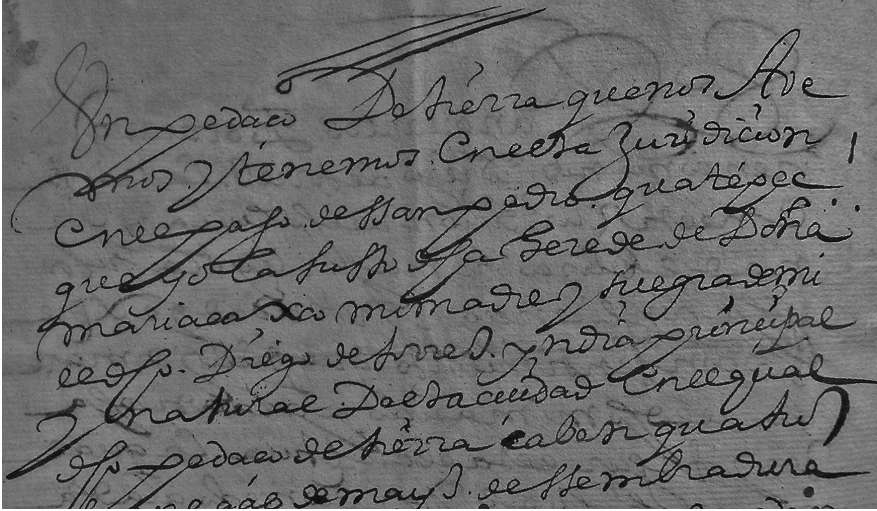 Un pedaço De tierra que nos Ave
mos y tenemos En esta Juridicion
En el pago de ssan pedro guatepec
que yo la susso dha herede de Doña
maria caxa mi madre y suegra de mi
el dho Diego de torres yndia prinçipal
y natural Desta ciudad En el qual
dho pedaço de tierra caben quatro
de mays de ssembradura